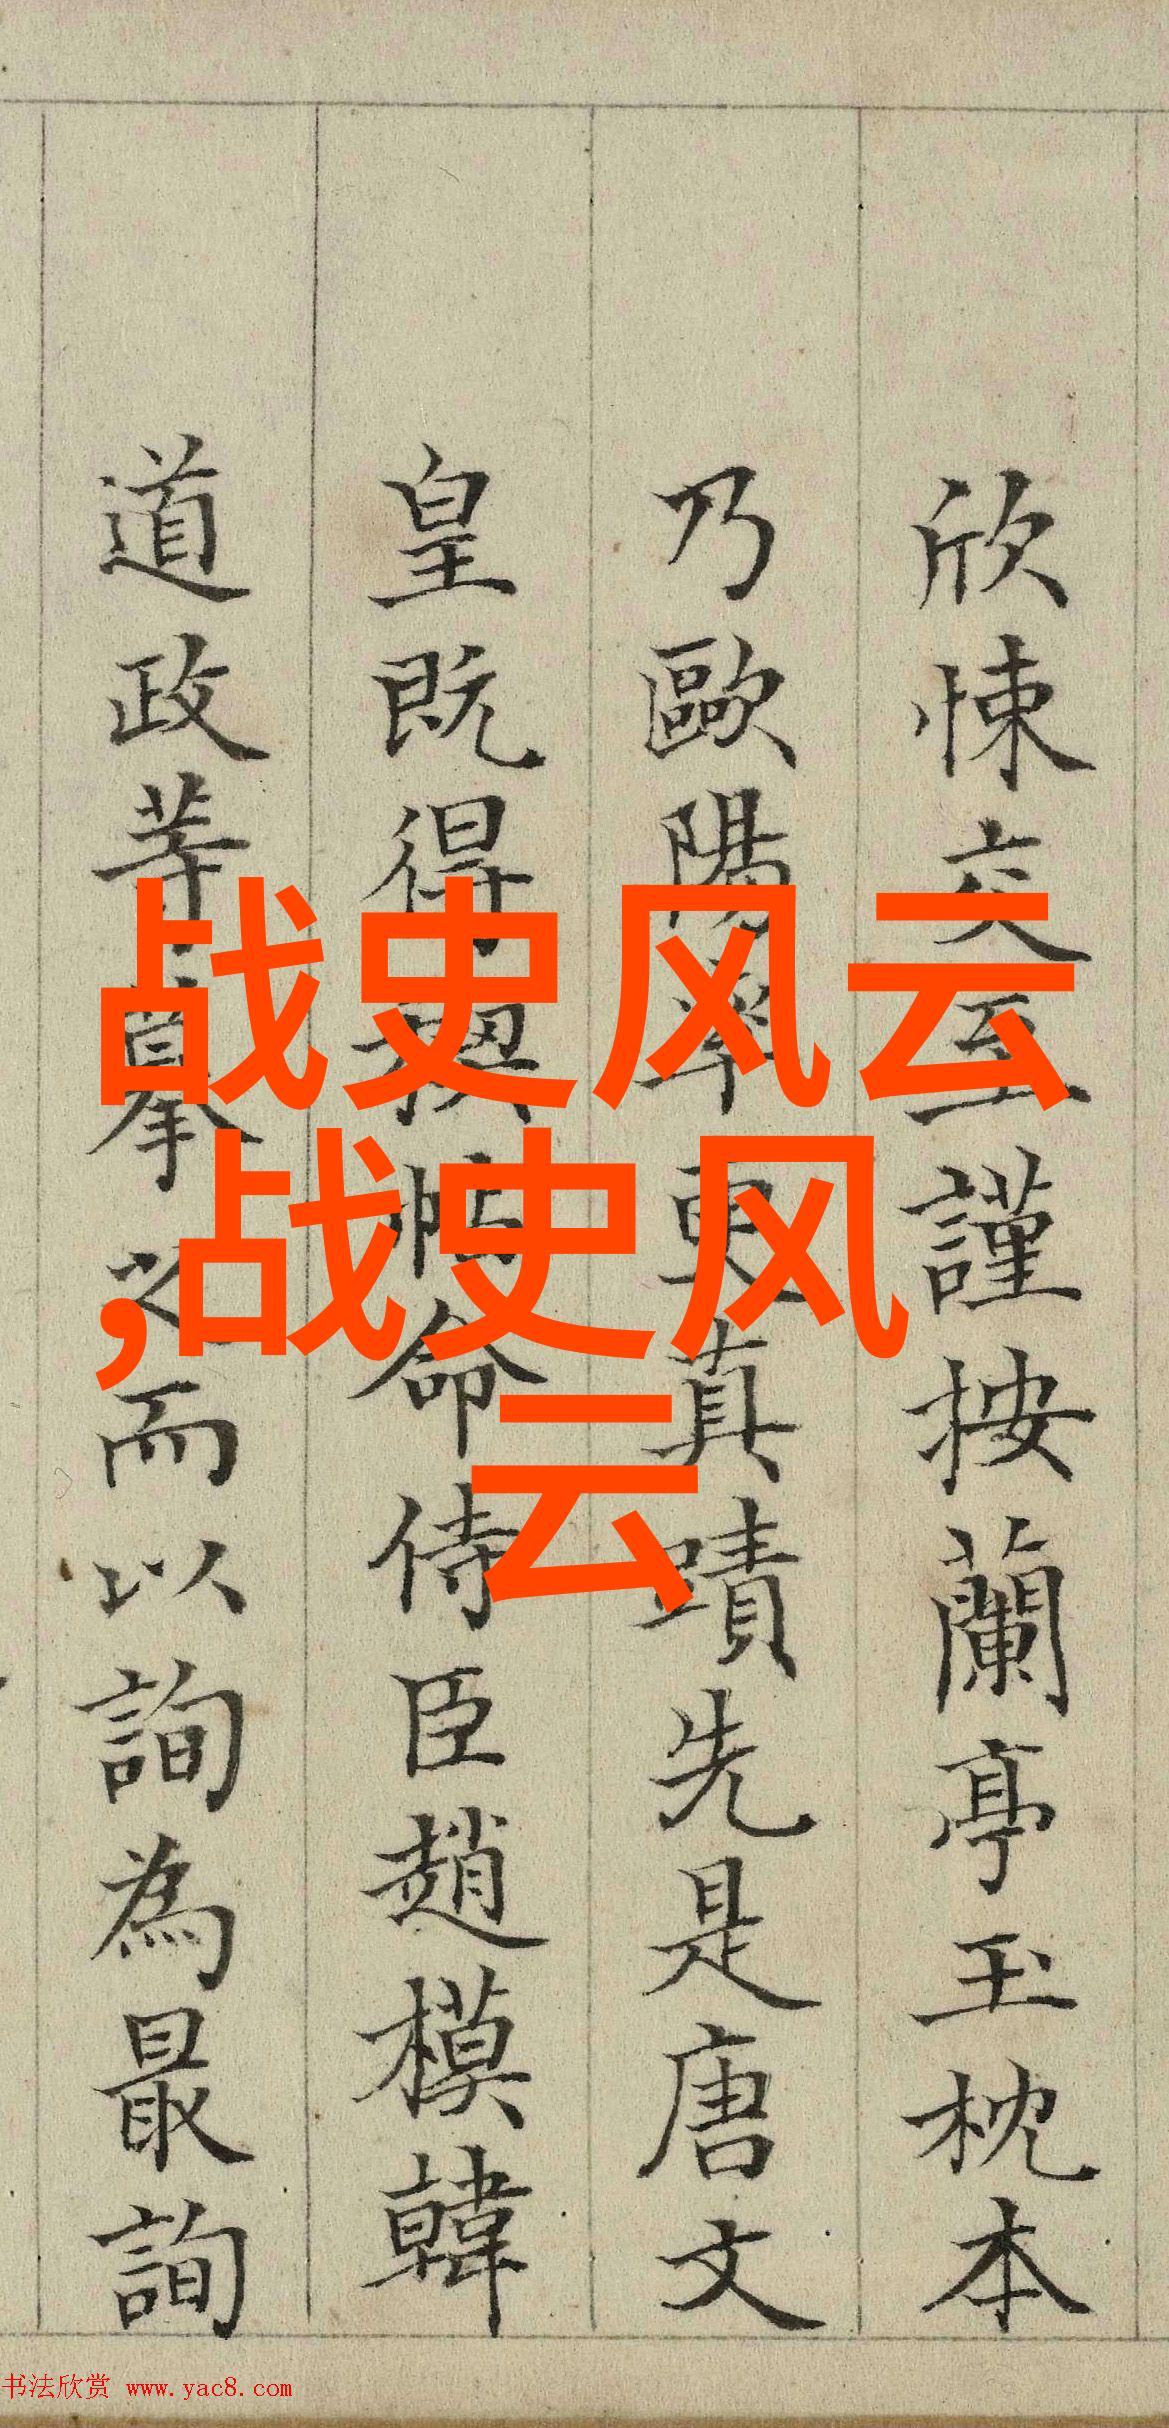 欣悚交至謹按蘭亭玉枕本
乃歐陽率更真蹟先是唐文
皇既得帖命侍臣趙模韓
道政等摹之而以詢為最詢
战史风云
,战史风
云
书法欣赏 www.yac8.com